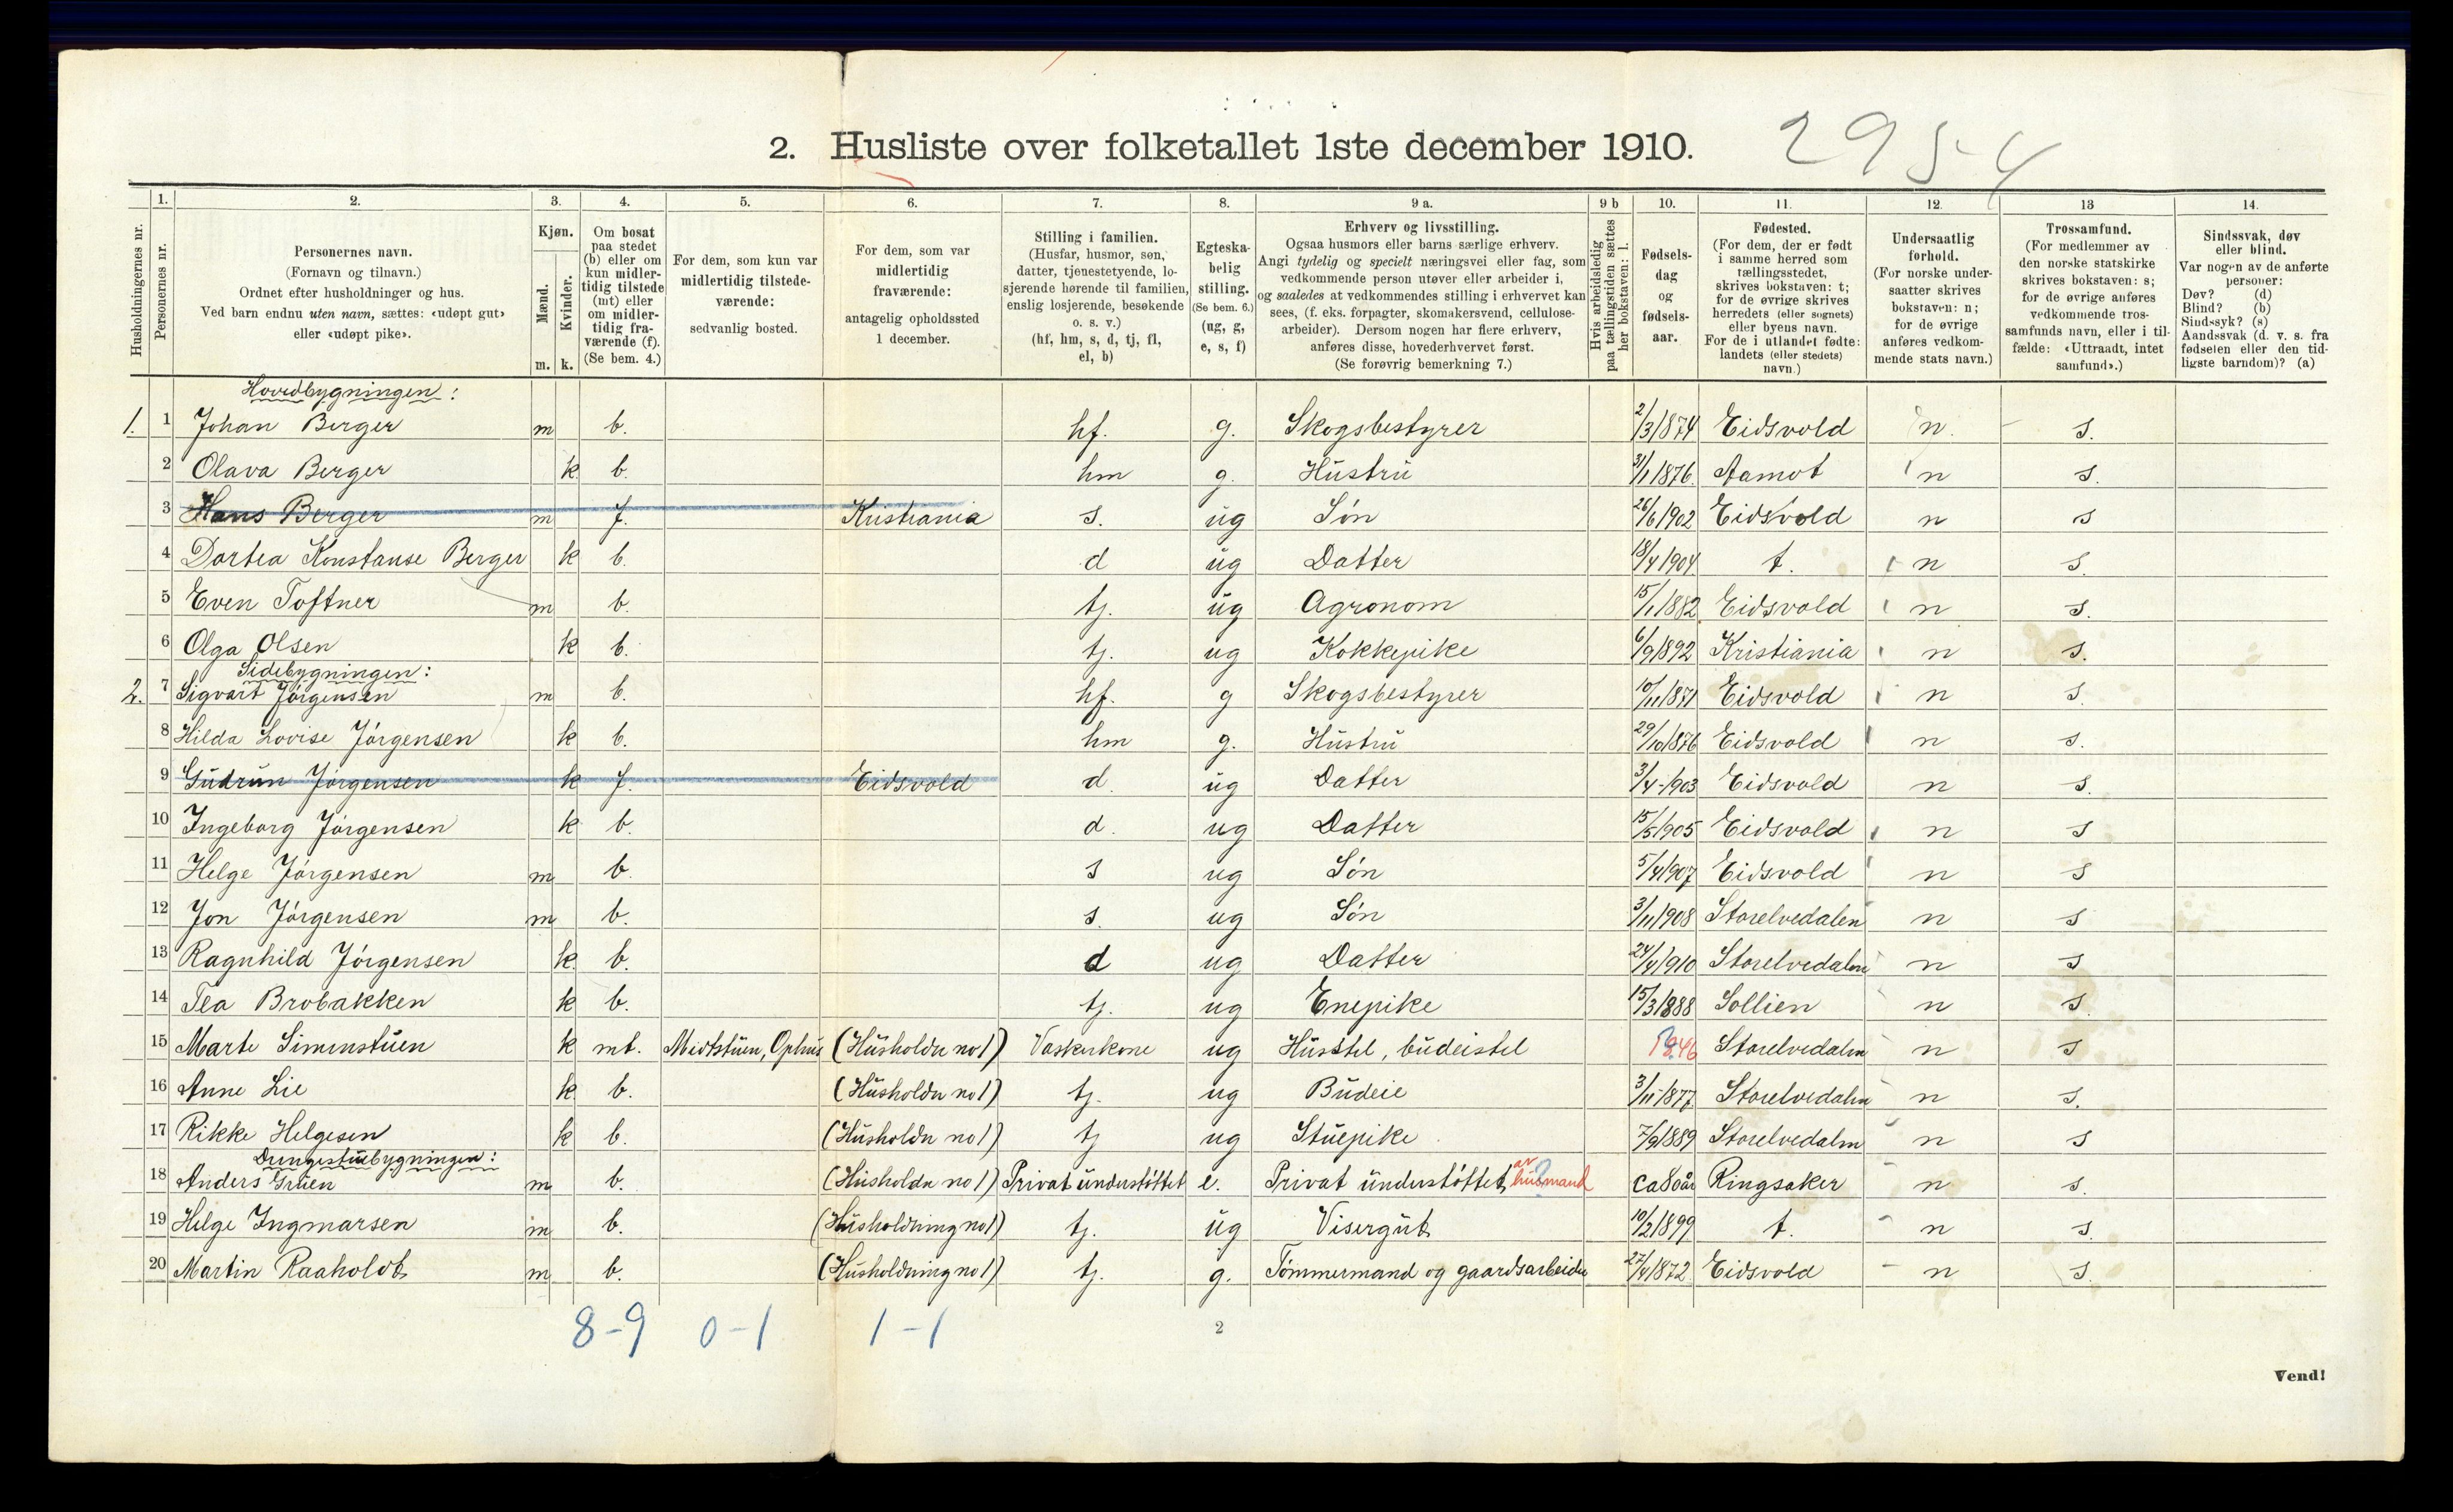 2. Husliste over folketallet 1ste december 1910.
295-4
1. 2. 3. 4. 5. 6. 7. 8. 9 a. 9 b 10. 11. 12. 13 14.
Husholdningernes nr.
Personernes nr.
Personernes navn.
(Fornavn og tilnavn.)
Ordnet efter husholdninger og hus.
Ved barn endnu uten navn, sættes: «udøpt gut»
eller «udøpt pike».
Kjøn.
Mænd.
Kvinder.
m. k.
Om bosat
paa stedet
(b) eller om
kun midler-
tidig tilstede
(mt) eller
om midler-
tidig fra-
værende (f).
(Se bem. 4.)
For dem, som kun var
midlertidig tilstede-
værende:
sedvanlig bosted.
For dem, som var
midlertidig
fraværende:
antagelig opholdssted
1 december.
Stilling i familien.
(Husfar, husmor, søn,
datter, tjenestetyende, lo-
sjerende hørende til familien,
enslig losjerende, besøkende
o. s. v.)
(hf, hm, s, d, tj, fl,
el, b)
Egteska-
belig
stilling.
(Se bem. 6.)
(ug, g,
e, s, f)
Erhverv og livsstilling.
Ogsaa husmors eller barns særlige erhverv.
Angi tydelig og specielt næringsvei eller fag, som
vedkommende person utøver eller arbeider i,
og saaledes at vedkommendes stilling i erhvervet kan
sees, (f. eks. forpagter, skomakersvend, cellulose-
arbeider). Dersom nogen har flere erhverv,
anføres disse, hovederhvervet først.
(Se forøvrig bemerkning 7.)
Hvis arbeidsledig
paa tællingstiden sættes
her bokstaven: l.
Fødsels-
dag
og
fødsels-
aar.
Fødested.
(For dem, der er født
i samme herred som
tællingsstedet,
skrives bokstaven: t;
for de øvrige skrives
herredets (eller sognets)
eller byens navn.
For de i utlandet fødte:
landets (eller stedets)
navn.)
Undersaatlig
forhold.
(For norske under-
saatter skrives
bokstaven: n;
for de øvrige
anføres vedkom-
mende stats navn.)
Trossamfund.
(For medlemmer av
den norske statskirke
skrives bokstaven: s;
for de øvrige anføres
vedkommende tros-
samfunds navn, eller i til-
fælde: «Uttraadt, intet
samfund».)
Sindssvak, døv
eller blind.
Var nogen av de anførte
personer:
Døv? (d)
Blind? (b)
Sindssyk? (s)
Aandssvak (d. v. s. fra
fødselen eller den tid-
ligste barndom)? (a)
Hovedbygningen:
1. 1 Johan Berger m b. hf. g. Skogsbestyrer 2/3 1874 Eidsvold n. s.
2 Olava Berger k b. hm g. Hustru 31/1 1876. Aamot n s.
3 Hans Berger m f. Kristiania s. ug Søn 26/6 1902 Eidsvold n s
4 Dortea Konstanse Berger k b. d ug Datter 18/4 1904. t. n s.
5 Even Toftner m b. tj. ug Agronom 15/1 1882 Eidsvold n s.
6 Olga Olsen k b. tj. ug Kokkepike 6/9 1892 Kristiania n s.
Sidebygningen:
2. 7 Sigvart Jørgensen m b. hf. g Skogsbestyrer 10/11 1871 Eidsvold n s.
8 Hilda Lovise Jørgensen k b. hm g. Hustru 29/10 1876 Eidsvold n s.
9 Gudrun Jørgensen k f. Eidsvold d. ug Datter 3/4-1903 Eidsvold n s.
10 Ingeborg Jørgensen k b. d. ug Datter 15/5 1905 Eidsvold n s
11 Helge Jørgensen m b. s ug Søn 5/4 1907 Eidsvold n s
12 Jon Jørgensen m b. s. ug Søn 3/11 1908 Storelvedalen n s
13 Ragnhild Jørgensen k b. d ug Datter 24/4 1910 Storelvedalen n s
14 Tea Brobakken k b. tj. ug Enepike 15/3 1888 Sollien n s
15 Marte Simenstuen k mt. Midtstuen, Ophus (Husholdn no 1) Vaskerkone ug Husstel, budeistel 1846 Storelvedalen n s
16 Anne Lie k b. (Husholdn no 1) tj. ug Budeie 3/11-1877 Storelvedalen n s.
17 Rikke Helgesen k b. (Husholdn no 1) tj ug Stuepike 7/9 1889 Storelvedalen n s
Drengestuebygningen:
18 Anders Gruen m b. (Husholdn no 1) Privat understøttet e. Privat understøttet, av husmand ca 80 år Ringsaker n s.
19 Helge Ingmarsen m b. (Husholdning no 1) tj. ug Visergut 10/2 1899 t. n s.
20 Martin Raaholdt m b. (Husholdning no 1) tj. g. Tømmermand og gaardsarbeider 27/4 1872 Eidsvold n s.
8-9 0-1 1-1
2
Vend!